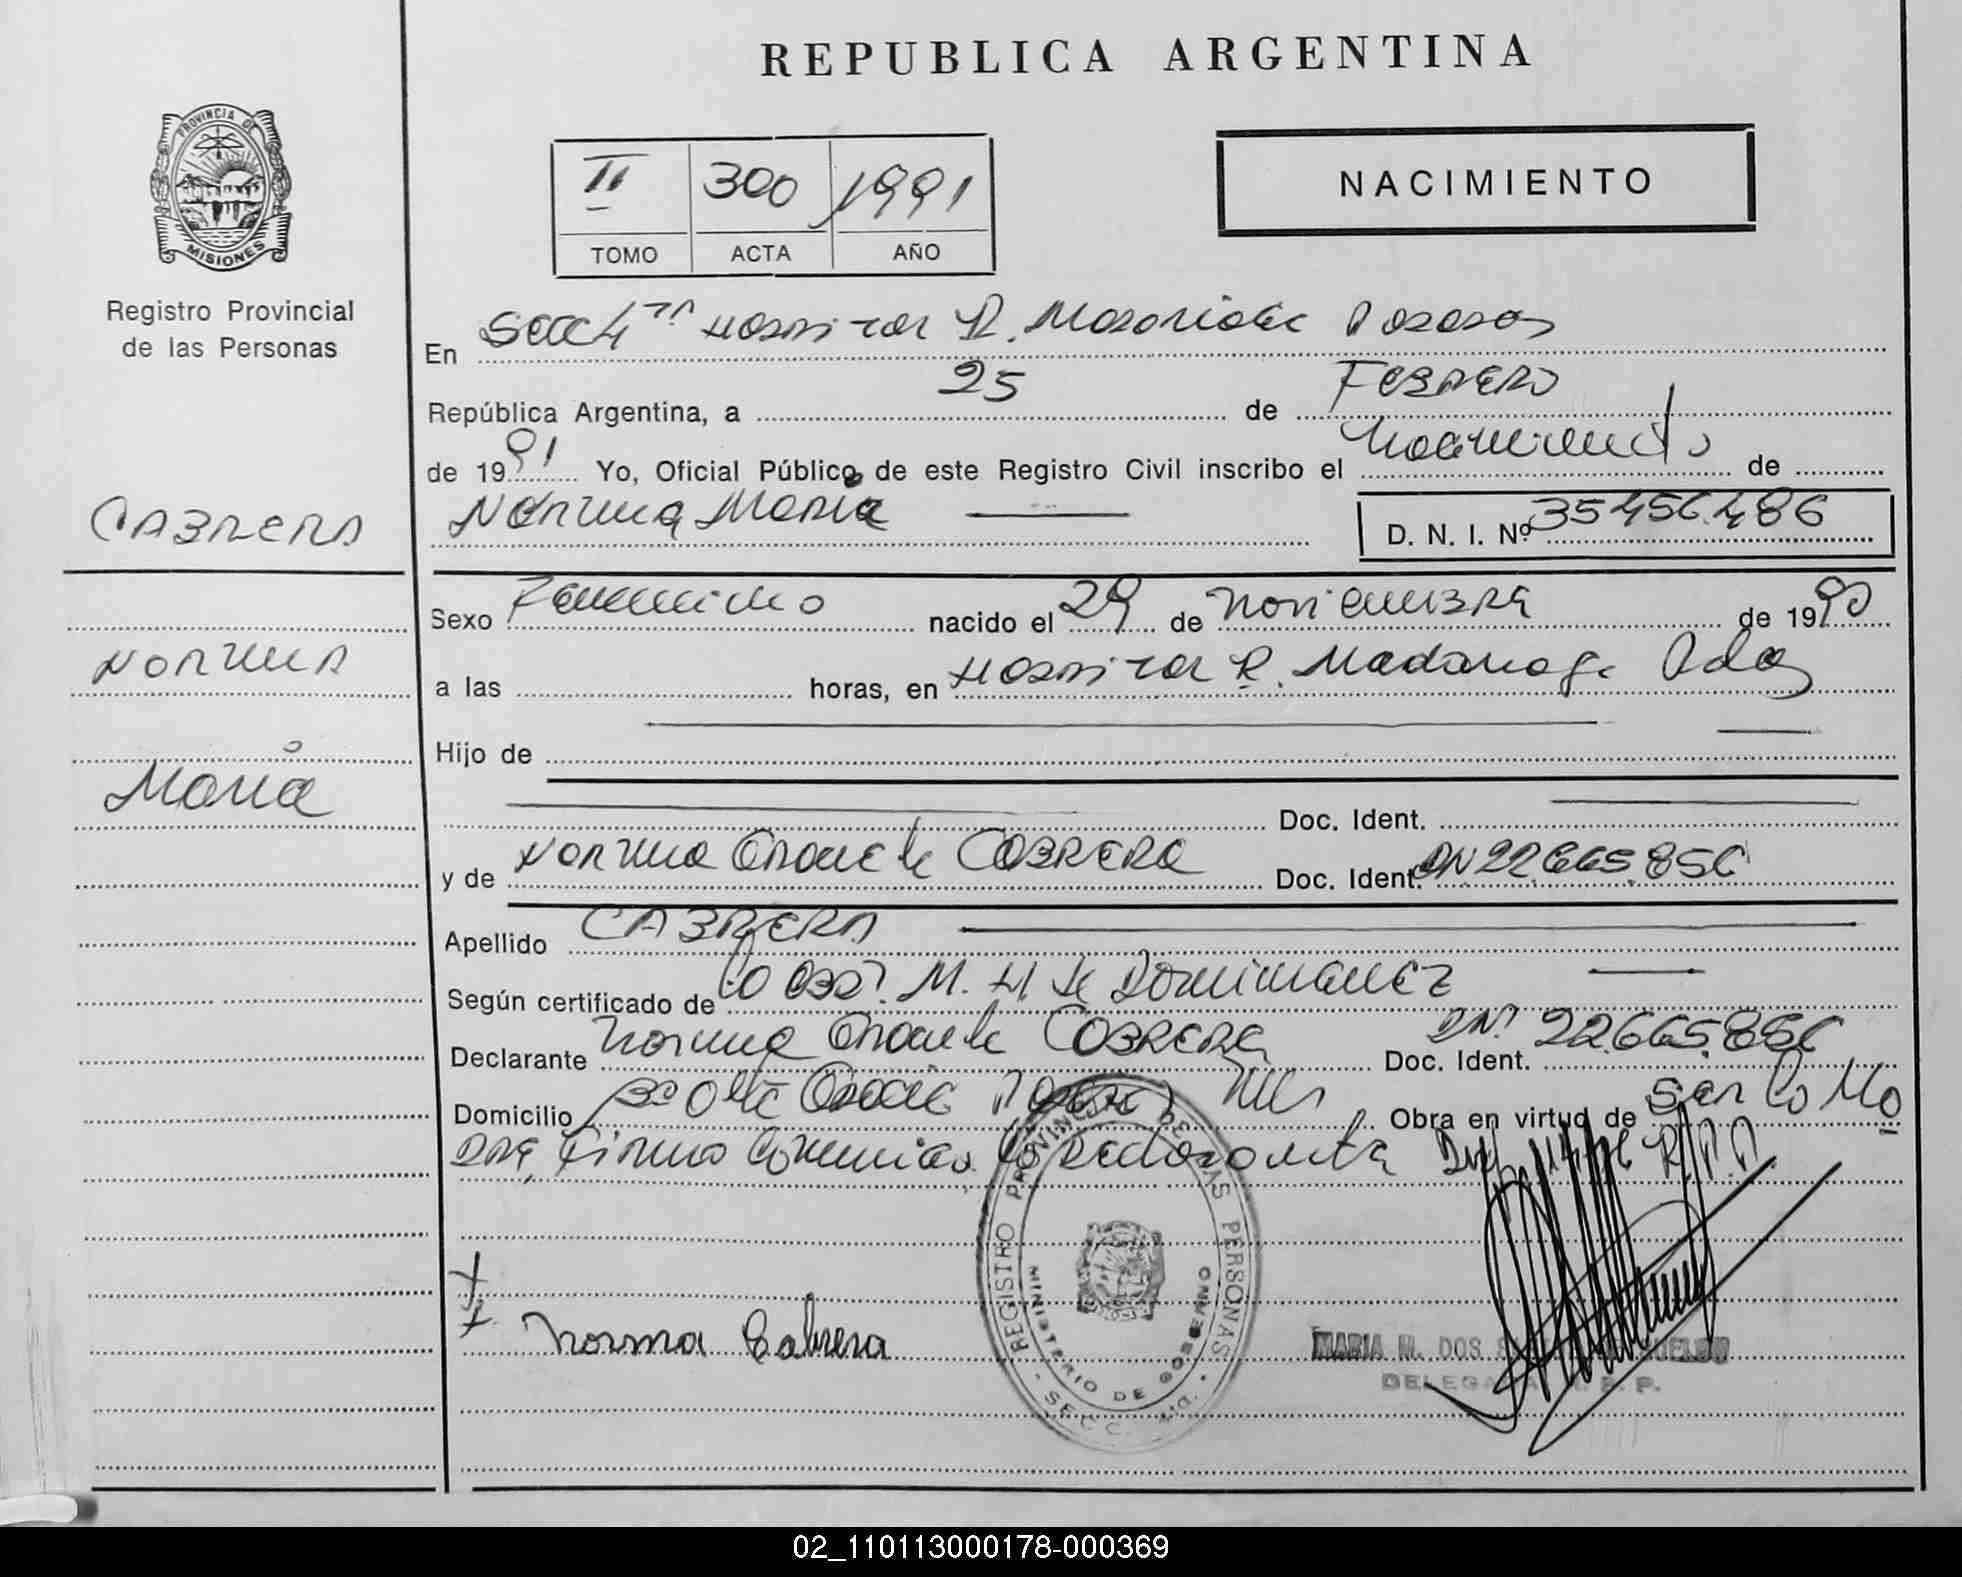 REPUBLICA ARGENTINA
PROVINCIA DE
MISIONES
Registro Provincial
de las Personas
II 300 1991
TOMO ACTA AÑO
NACIMIENTO
En Secc 4ta Hospital R. Madariaga Posadas
República Argentina, a 25 de Febrero
de 1991 Yo, Oficial Público de este Registro Civil inscribo el Nacimiento de
CABRERA
Norma Maria
D. N. I. Nº 35.456.486
Sexo Femenino nacido el 29 de Noviembre de 1990
NORMA
a las horas, en Hospital R. Madariaga Pdas
Hijo de
Maria
Doc. Ident.
y de Norma CABRERA Doc. Ident. DNI 22.665.856
Apellido CABRERA
Según certificado de la Obst. M. H de
Declarante Norma CABRERA Doc. Ident. DNI 22.665.856
Domicilio Obra en virtud de ser la Mo
dre, Firma
Norma Cabrera
REGISTRO PROVINCIAL DE LAS PERSONAS
MINISTERIO DE GOBIERNO
MARIA M. DOS
DELEGADA R. P. P.
02_110113000178-000369